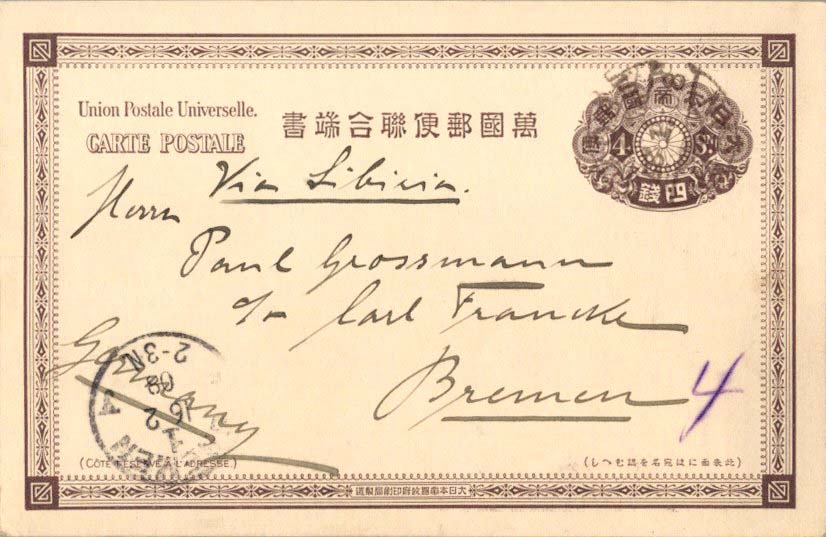 Union Postale Universelle.
CARTE POSTALE
萬國郵便聯合端書
4
四錢
Via Sibiria.
Herrn
Paul Grossmann
c/o Carl Francke
Bremen
4
Germany
BREMEN
16 2 08
2-3N
(CÔTÉ RÉSERVÉ À L'ADRESSE.)
(此表面には宛名を認むへし)
大日本帝國政府印刷局製造